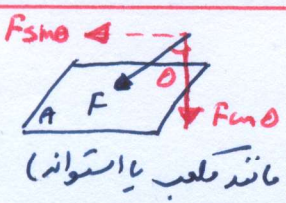 Fsinθ
θ
A F
Fcosθ
مانند مکعب یا استوانه)